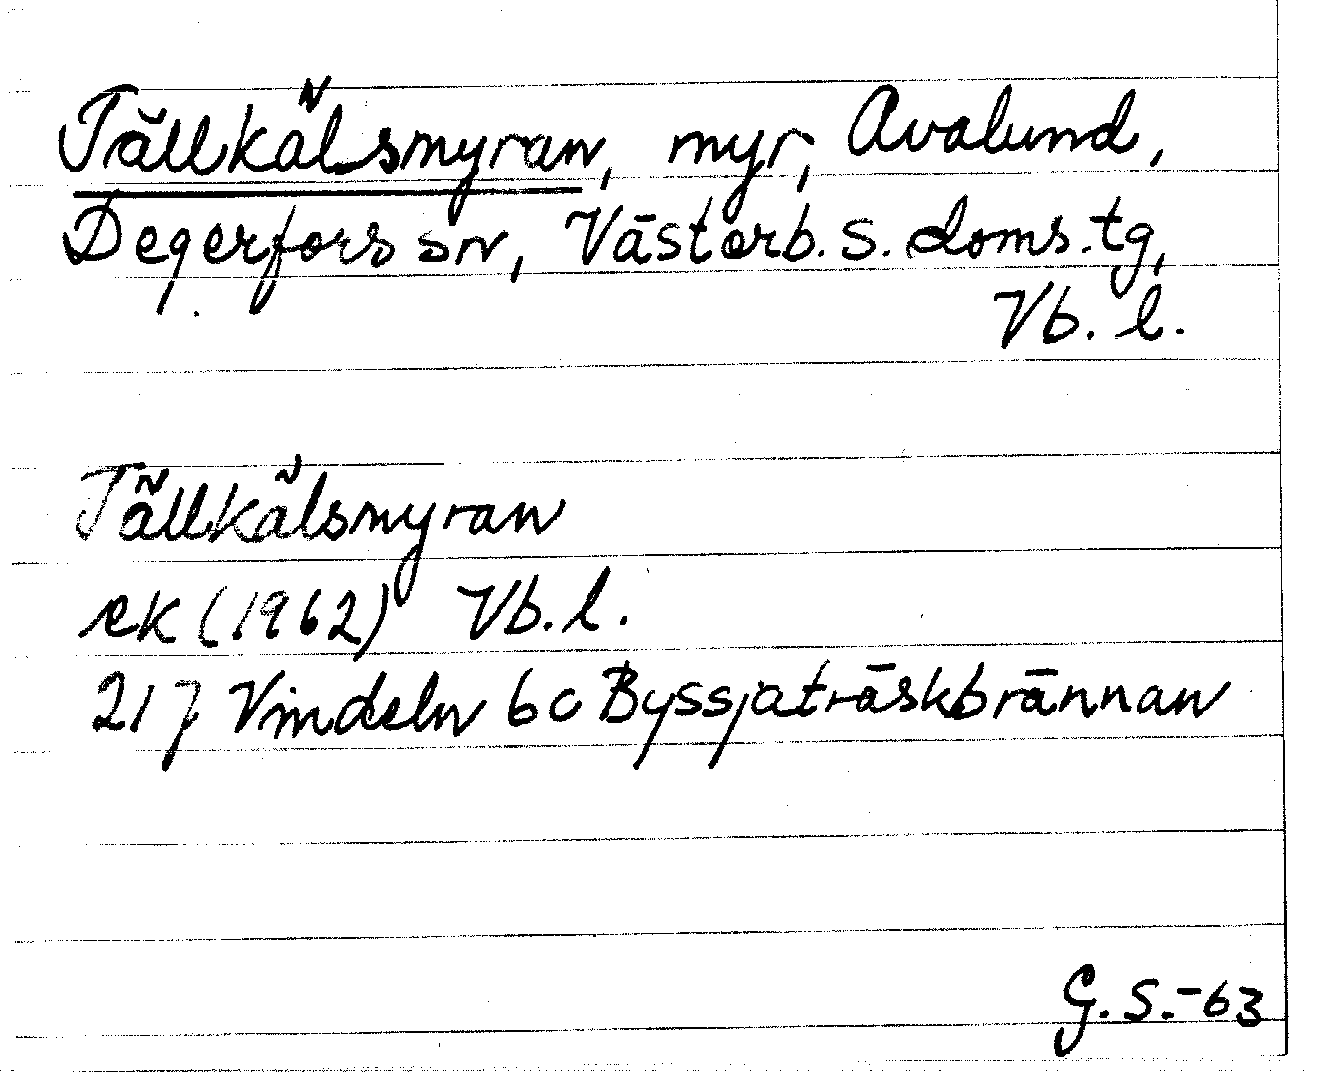 Tällkälsmyran, myr, Avalund,
Degerfors sn, Västerb. s. doms. tg,
Vb. l.
Tällkälsmyran
ek (1962) Vb. l.
21 J Vindeln 6c Byssjaträskbrännan
G. S. -63